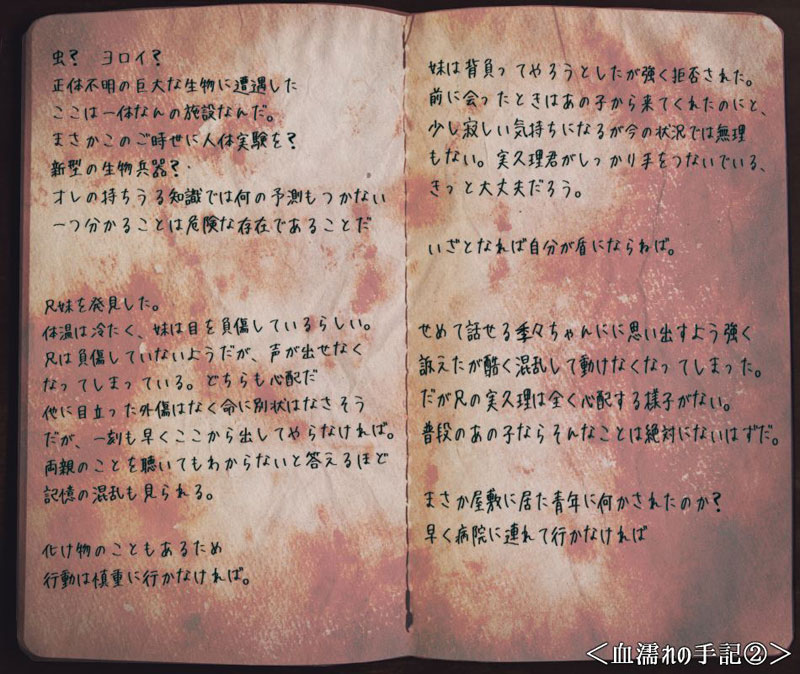 虫？　ヨロイ？
正体不明の巨大な生物に遭遇した
ここは一体なんの施設なんだ。
まさかこのご時世に人体実験を？
新型の生物兵器？
オレの持ちうる知識では何の予測もつかない
一つ分かることは危険な存在であることだ
兄妹を発見した。
体温は冷たく、妹は目を負傷しているらしい。
兄は負傷していないようだが、声が出せなく
なってしまっている。どちらも心配だ
他に目立った外傷はなく命に別状はなさそう
だが、一刻も早くここから出してやらなければ。
両親のことを聴いてもわからないと答えるほど
記憶の混乱も見られる。
化け物のこともあるため
行動は慎重に行かなければ。
妹は背負ってやろうとしたが強く拒否された。
前に会ったときはあの子から来てくれたのにと、
少し寂しい気持ちになるが今の状況では無理
もない。実久理君がしっかり手をつないでいる、
きっと大丈夫だろう。
いざとなれば自分が盾にならねば。
せめて話せる季々ちゃんにに思い出すよう強く
訴えたが酷く混乱して動けなくなってしまった。
だが兄の実久理は全く心配する様子がない。
普段のあの子ならそんなことは絶対にないはずだ。
まさか屋敷に居た青年に何かされたのか？
早く病院に連れて行かなければ
＜血濡れの手記②＞